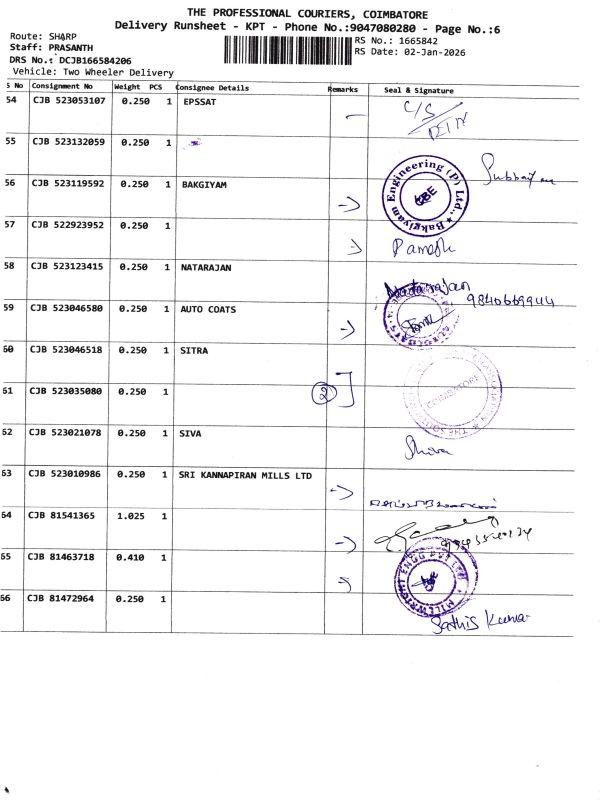 THE PROFESSIONAL COURIERS, COIMBATORE
Delivery Runsheet - KPT - Phone No.:9047080280 - Page No.:6
Route: SHARP
RS No.: 1665842
Staff: PRASANTH
RS Date: 02-Jan-2026
DRS No.: DCJB166584206
Vehicle: Two Wheeler Delivery
S No Consignment No Weight PCS Consignee Details Remarks Seal & Signature
54 CJB 523053107 0.250 1 EPSSAT C/S
55 CJB 523132059 0.250 1
56 CJB 523119592 0.250 1 BAKGIYAM Bakgiyam Engineering (P) Ltd., CBE
57 CJB 522923952 0.250 1
58 CJB 523123415 0.250 1 NATARAJAN Natarajan
9840669944
59 CJB 523046580 0.250 1 AUTO COATS
60 CJB 523046518 0.250 1 SITRA COIMBATORE
61 CJB 523035080 0.250 1 2
62 CJB 523021078 0.250 1 SIVA Shiva
63 CJB 523010986 0.250 1 SRI KANNAPIRAN MILLS LTD
64 CJB 81541365 1.025 1
65 CJB 81463718 0.410 1 MILLWRIGHT ENGG PVT LTD
66 CJB 81472964 0.250 1 Sathis Kumar